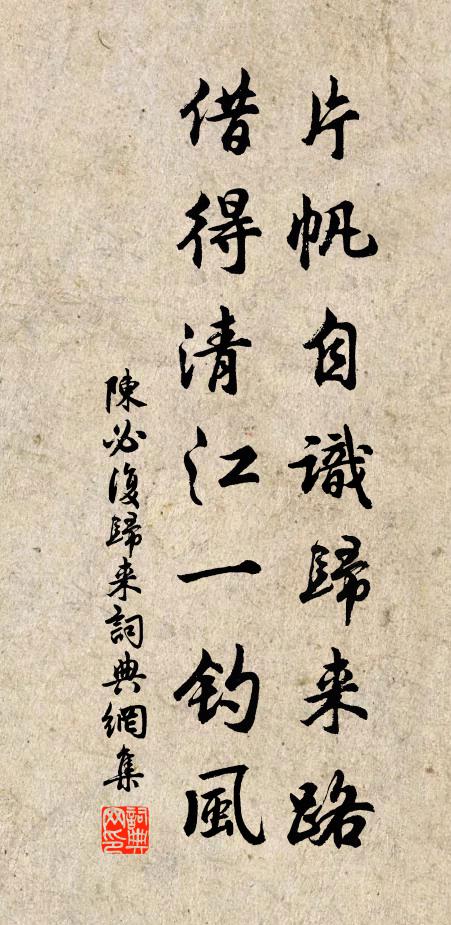 片帆自識歸来路
借得清江一釣風
陳必復歸来詞典網集
詞典网印